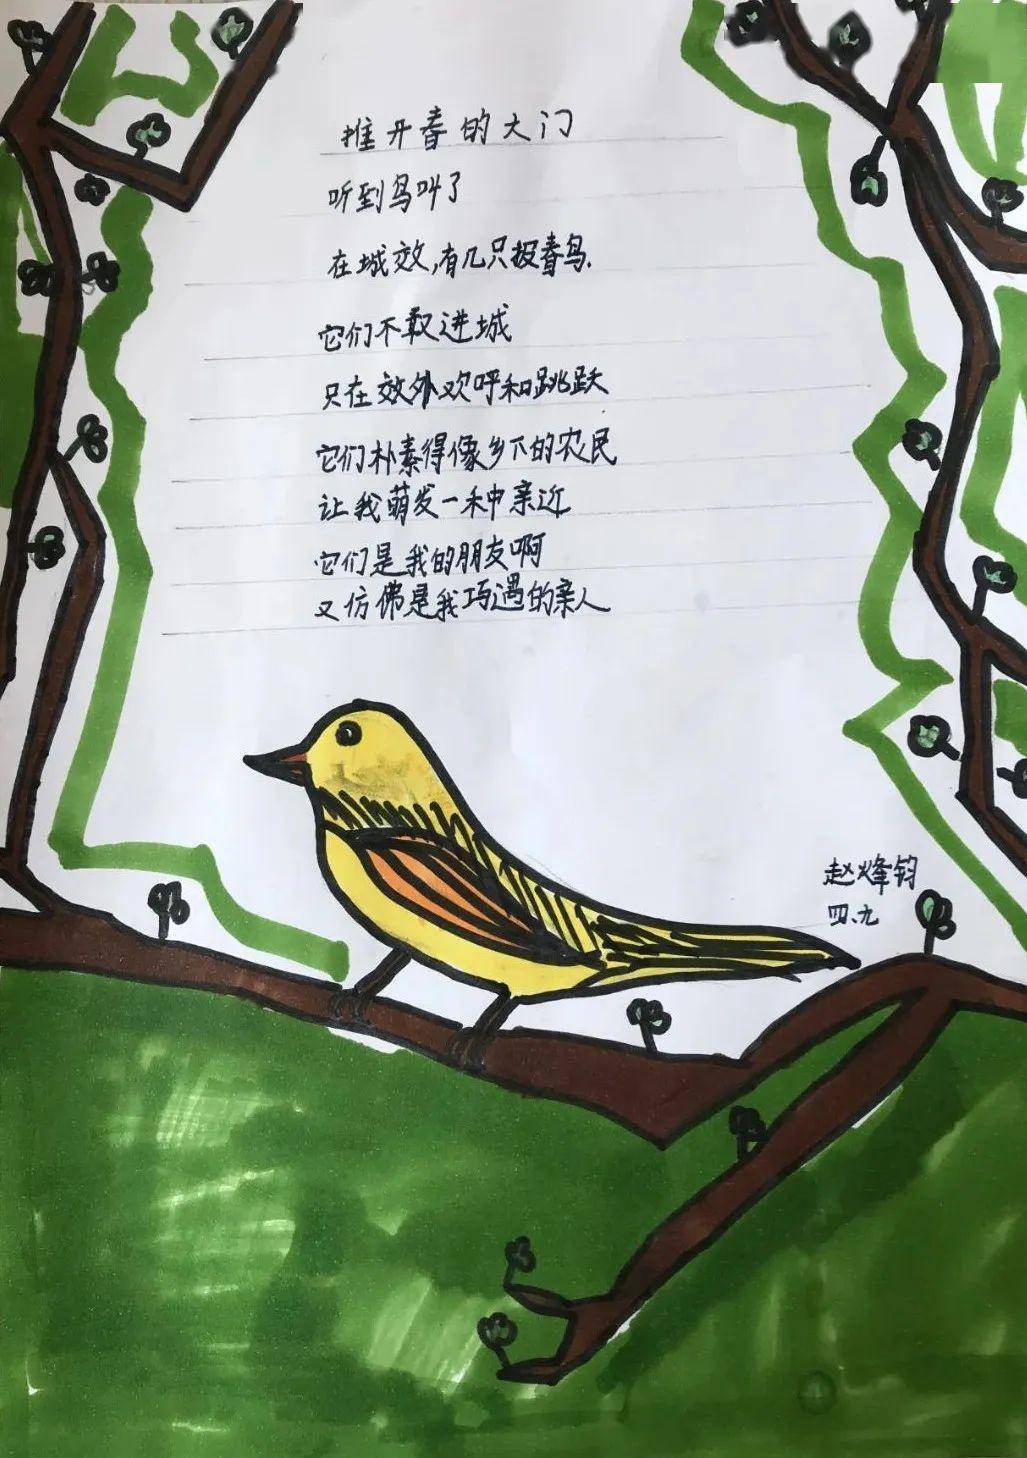 推开春的大门
听到鸟叫了
在城效,有几只报春鸟.
它们不敢进城
只在效外欢呼和跳跃
它们朴素得像乡下的农民
让我萌发一种亲近
它们是我的朋友啊
又仿佛是我巧遇的亲人
赵烽钧
四.九